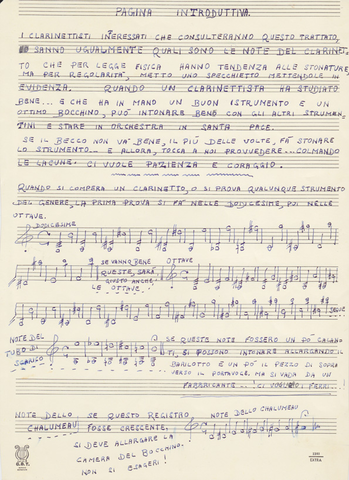 PAGINA INTRODUTTIVA.
I CLARINETTISTI INTERESSATI CHE CONSULTERANNO QUESTO TRATTATO,
SANNO UGUALMENTE QUALI SONO LE NOTE DEL CLARINET-
TO CHE PER LEGGE FISICA HANNO TENDENZA ALLE STONATURE,
MA PER REGOLARITÀ, METTO UNO SPECCHIETTO METTENDOLE IN
EVIDENZA. QUANDO UN CLARINETTISTA HA STUDIATO
BENE... E CHE HA IN MANO UN BUON ISTRUMENTO E UN
OTTIMO BOCCHINO, PUÒ INTONARE BENE CON GLI ALTRI STRUMEN-
TINI E STARE IN ORCHESTRA IN SANTA PACE.
SE IL BECCO NON VA BENE, IL PIÙ DELLE VOLTE, FA STONARE
LO STRUMENTO... E ALLORA, TOCCA A NOI PROVVEDERE... COLMANDO
LE LACUNE. CI VUOLE PAZIENZA E CORAGGIO.
QUANDO SI COMPERA UN CLARINETTO, O SI PROVA QUALUNQUE STRUMENTO
DEL GENERE, LA PRIMA PROVA SI FA NELLE DODICESIME, POI NELLE
OTTAVE.
DODICESIME
SE VANNO BENE OTTAVE
QUESTE, SARÀ
GIUSTO ANCHE
LE OTTAVE.
NOTE DEL SE QUESTE NOTE FOSSERO UN PO' CALAN
TUBO DI TI, SI POSSONO INTONARE ALLARGANDO IL
SCARICO BARILOTTO E UN PO' IL PEZZO DI SOPRA
VERSO IL PORTAVOCE. MA SI VADA DA UN
FABBRICANTE... CI VOGLIONO FERRI..!
NOTE DELLO SE QUESTO REGISTRO, NOTE DELLO CHALUMEAU
CHALUMEAU FOSSE CRESCENTE,
SI DEVE ALLARGARE LA
CAMERA DEL BOCCHINO.
NON SI ESAGERI!